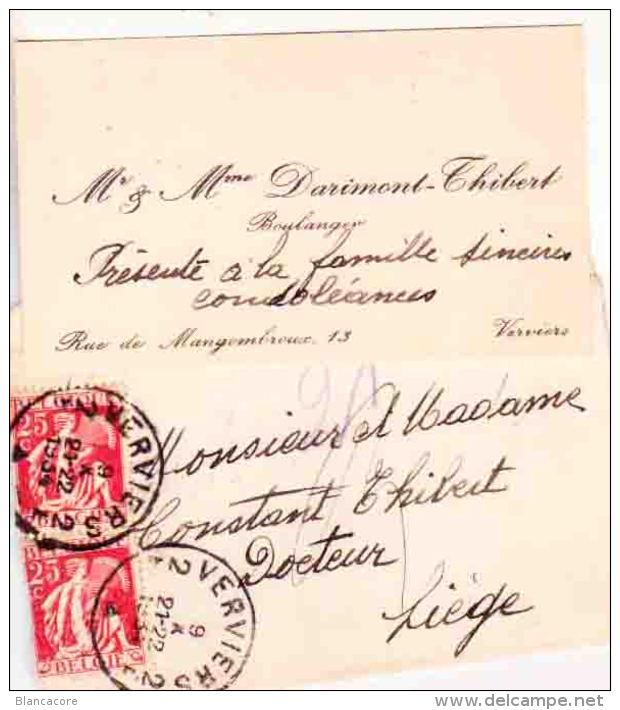 Mr & Mme Darimont-Thibert
Boulanger
Présente à la famille sincères
condoléances
Rue de Mangombroux, 13 Verviers
Monsieur et Madame
Constant Thibert
Docteur
Liège
25
VERVIERS 2
9
X
21-22
1934
25
c
BELGIE
VERVIERS 2
9
X
21-22
193
Blancacore
www.delcampe.net